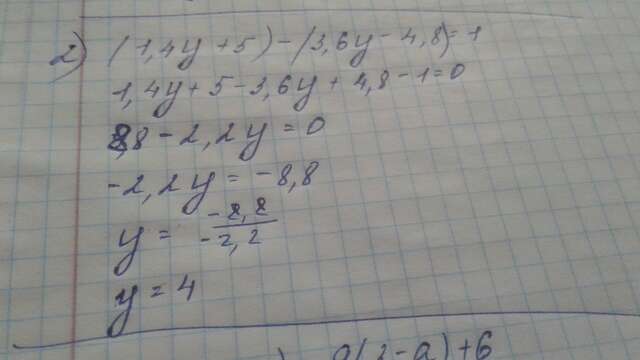 2) (1,4y + 5) - (3,6y - 4,8) = 1
1,4y + 5 - 3,6y + 4,8 - 1 = 0
8,8 - 2,2y = 0
-2,2y = -8,8
y = -8,8 / -2,2
y = 4
a(2-a)+6